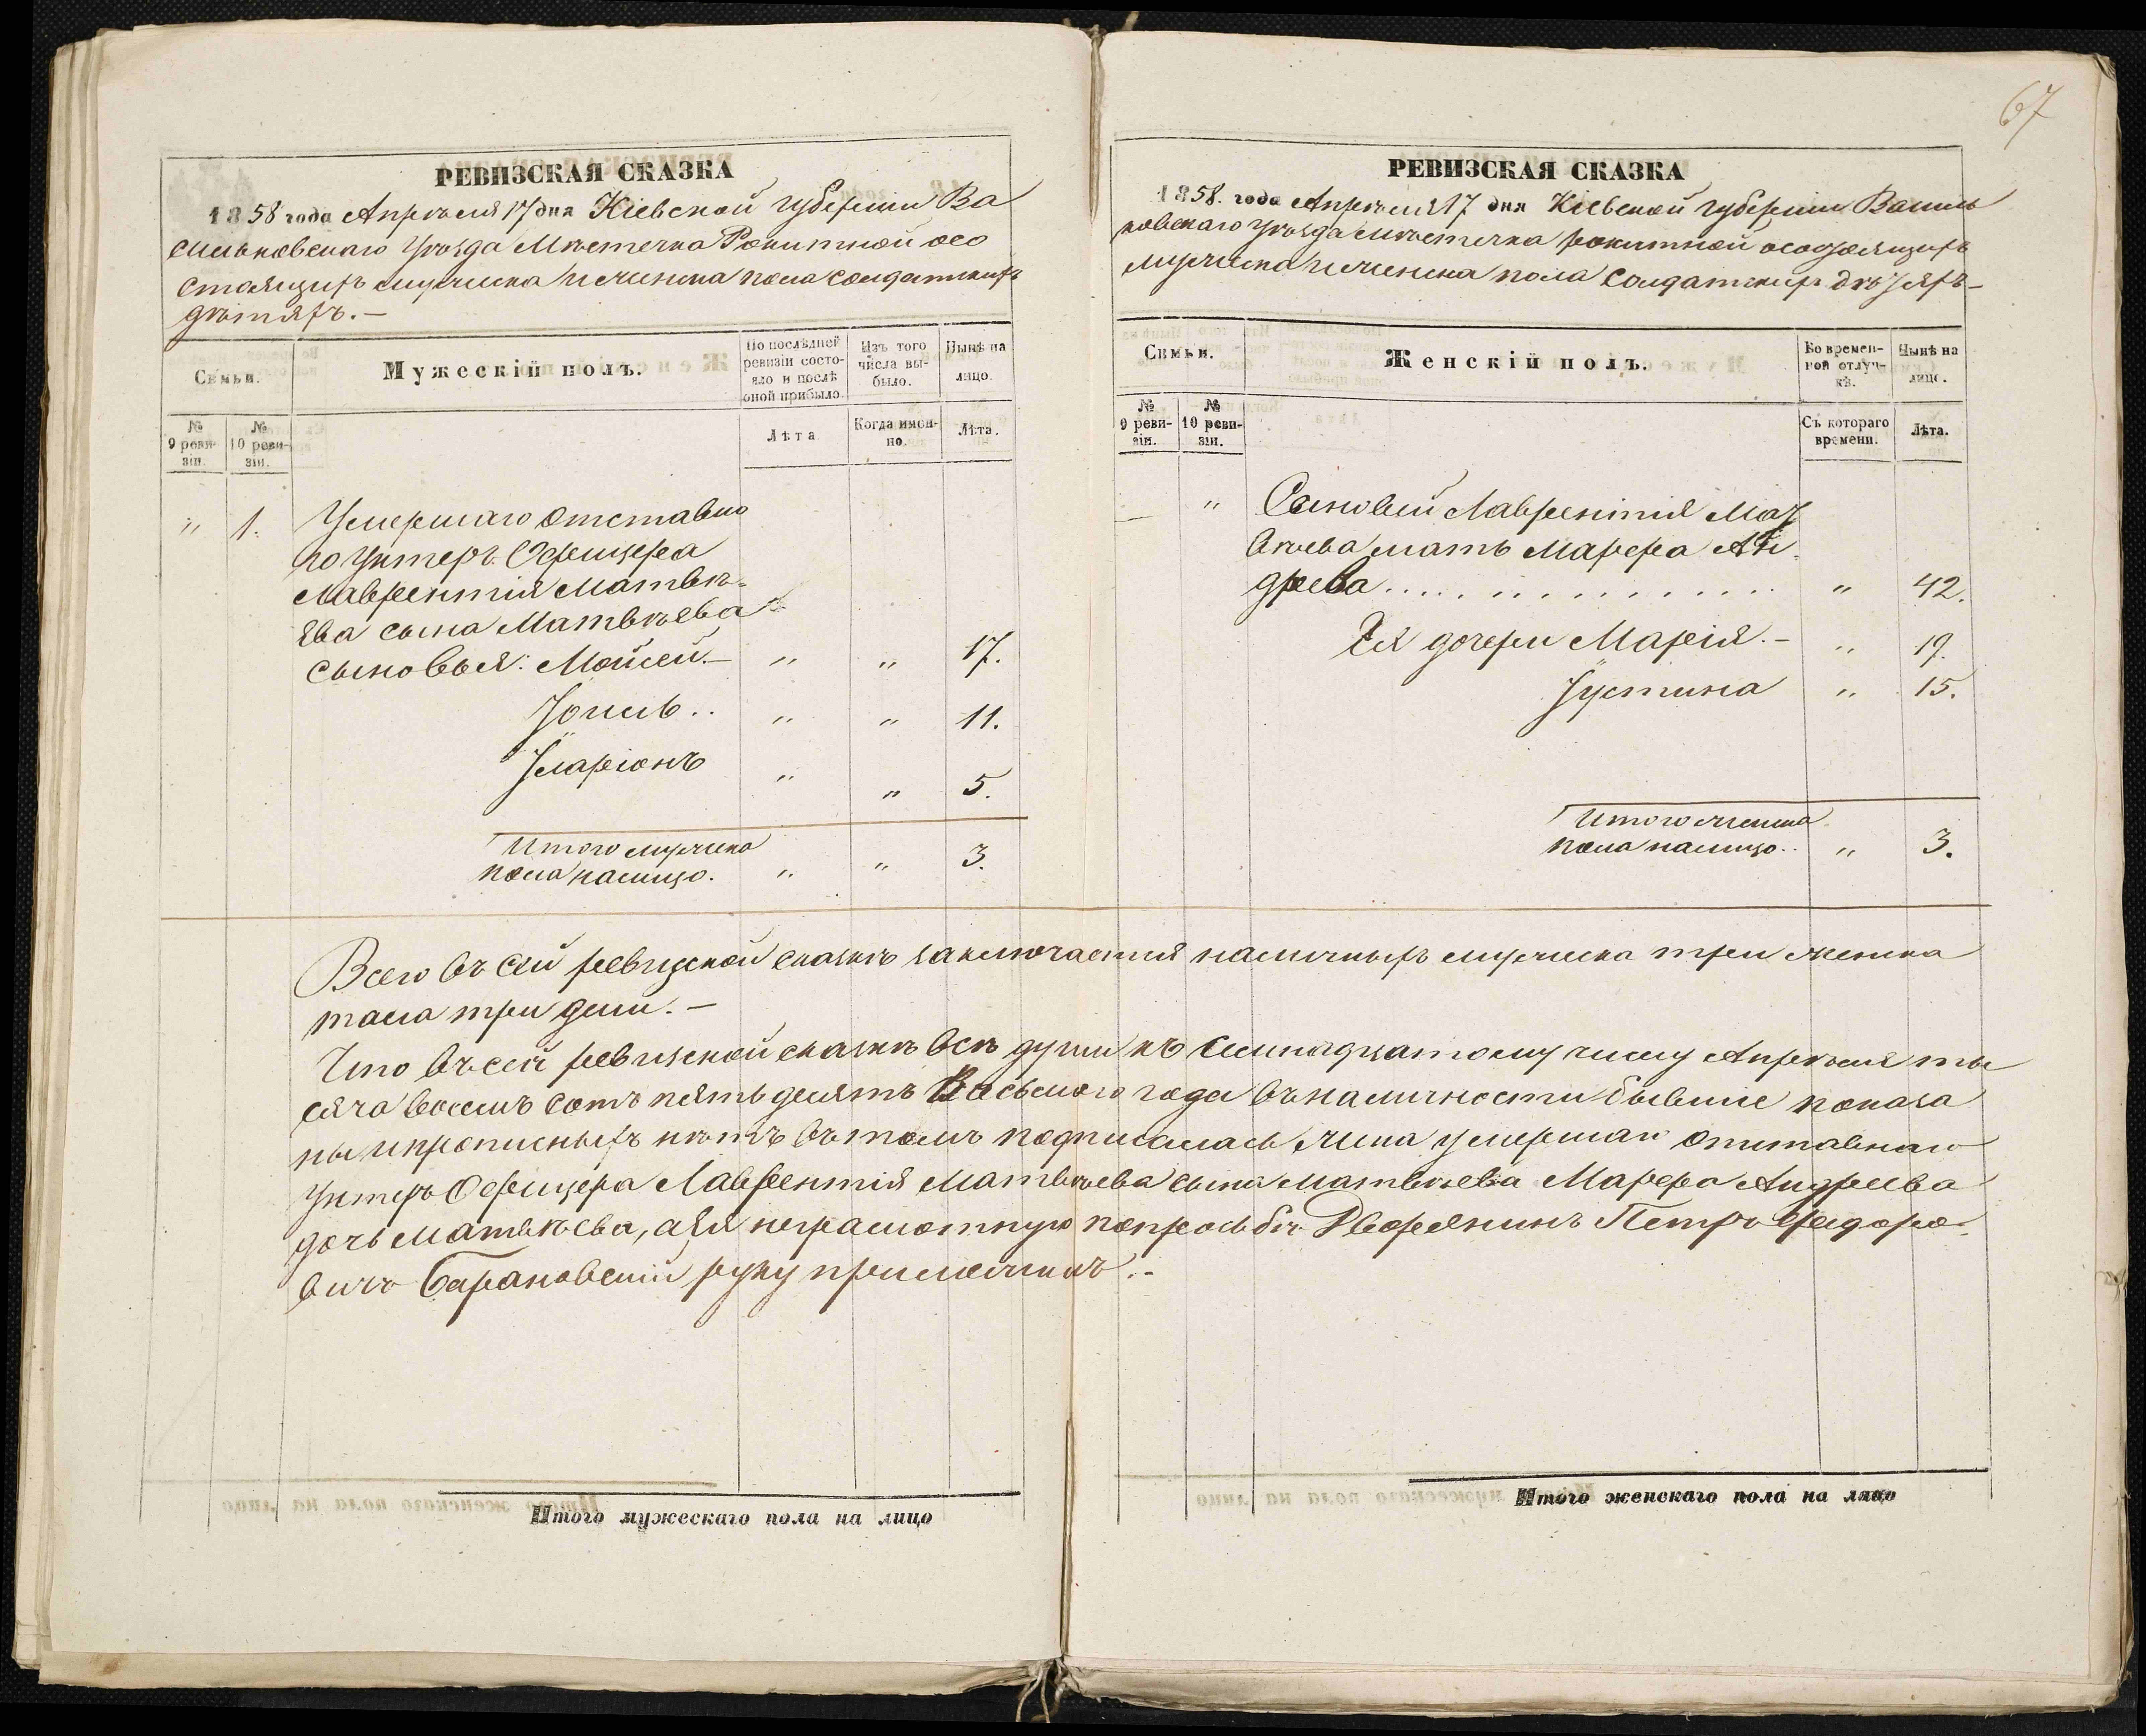 67
РЕВИЗСКАЯ СКАЗКА
1858 года Апрѣля 17 дня Кіевской губерніи Ва
сильковскаго уѣзда Мѣстечка Рокитной осо
стоящихъ мужеска и женска пола солдатскихъ
дѣтяхъ.—
Семьи.
Мужескій полъ.
По послѣдней
ревизіи состо-
яло и послѣ
оной прибыло.
Изъ того
числа вы-
было.
Нынѣ на
лицо.
№
9 реви-
зіи.
№
10 реви-
зіи.
Лѣта
Когда имен-
но.
Лѣта.
" 1. Умершаго отставно
го унтеръ Офицера
Лаврентія Матвѣ-
ева сына Матвѣева
сыновья: Мойсей.— " " 17.
Іосиь.. " " 11.
Іларіонъ " " 5.
Итого мужска
пола налицо. " " 3.
РЕВИЗСКАЯ СКАЗКА
1858. года Апрѣля 17 дня Кіевской губерніи Василь
ковскаго уѣзда мѣстечка рокитной
мужеска и женска пола солдатских дѣтяхъ—
Семьи.
Женскій полъ.
Во времен-
ной отлуч-
кѣ.
Нынѣ на
лицо.
№
9 реви-
зіи.
№
10 реви-
зіи.
Съ котораго
времени.
Лѣта.
— " Сыновей Лаврентія Мат
вѣева мать Марфа Ан
дреева " 42.
Ея дочери Марія.— " 19.
Іустина " 15.
Итого женска
пола налицо.. " 3.
Всего въ сей ревизской сказкѣ заключается наличныхъ мужеска три женска
пола три душ.—
Что въ сей ревизской сказкѣ всѣ души къ семнадцатому числу Апрѣля ты
сяча восемь сотъ пятьдесятъ Восьмого года въ наличности бывшіе показа
ны и прописныхъ нѣтъ въ томъ подписалась жина умершаго отставнаго
унтеръ Офицера Лаврентія Матвѣева сына Матвѣева Марфа Андреева
дочь Матвѣева, а Ея неграмотную по прозьбѣ Дворянинъ Петръ Федоро-
вичъ Барановскій руку приложилъ.—
Итого мужескаго пола на лицо
Итого женскаго пола на лицо